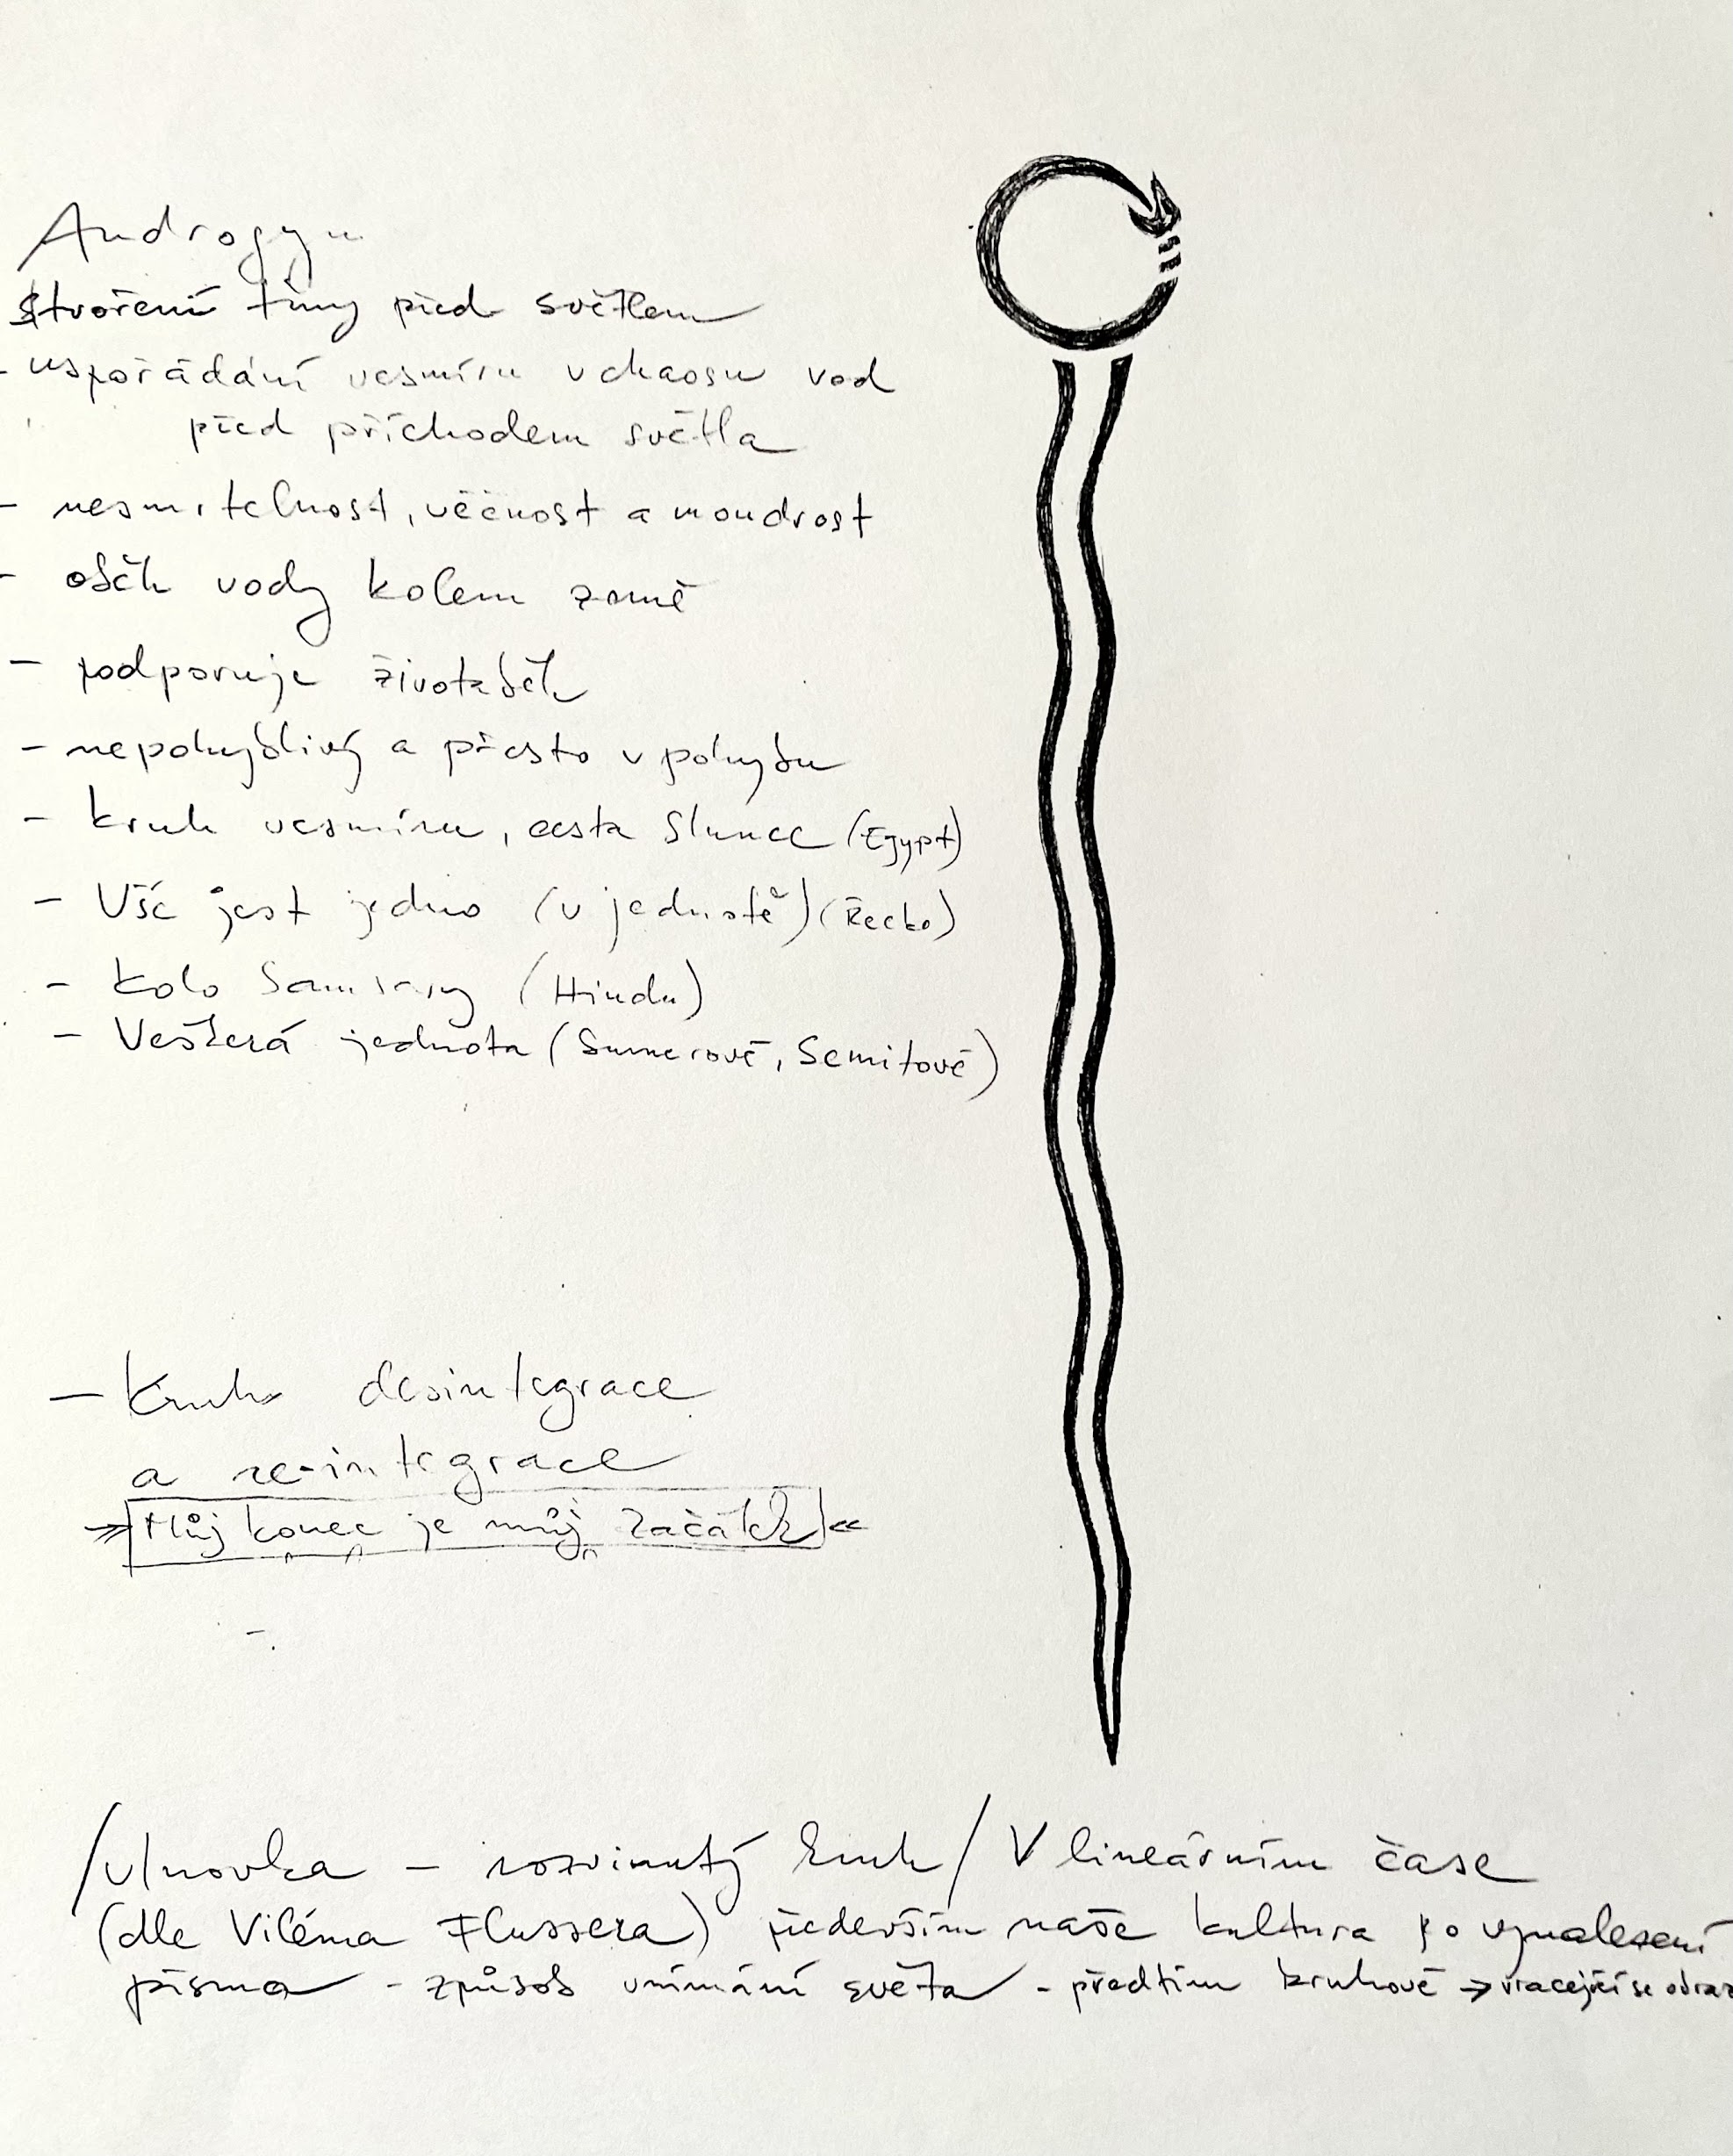 Androgyn
stvoření tmy před světlem
- uspořádání vesmíru v chaosu vod
před příchodem světla
- nesmrtelnost, věčnost a moudrost
- oběh vody kolem země
- podporuje životaběh
- nepohyblivý a přesto v pohybu
- kruh vesmíru, cesta Slunce (Egypt)
- Vše jest jedno (v jednotě) (Řecko)
- Kolo Samsary (Hindu)
- Veškerá jednota (Sumerové, Semitové)
- Kruh desintegrace
a re-integrace
Můj konec je můj začátek
/vlnovka - rozvinutý kruh/ V lineárním čase
(dle Viléma Flussera) především naše kultura po vynalezení
písma - způsob vnímání světa - předtím kruhové → vracející se obraz